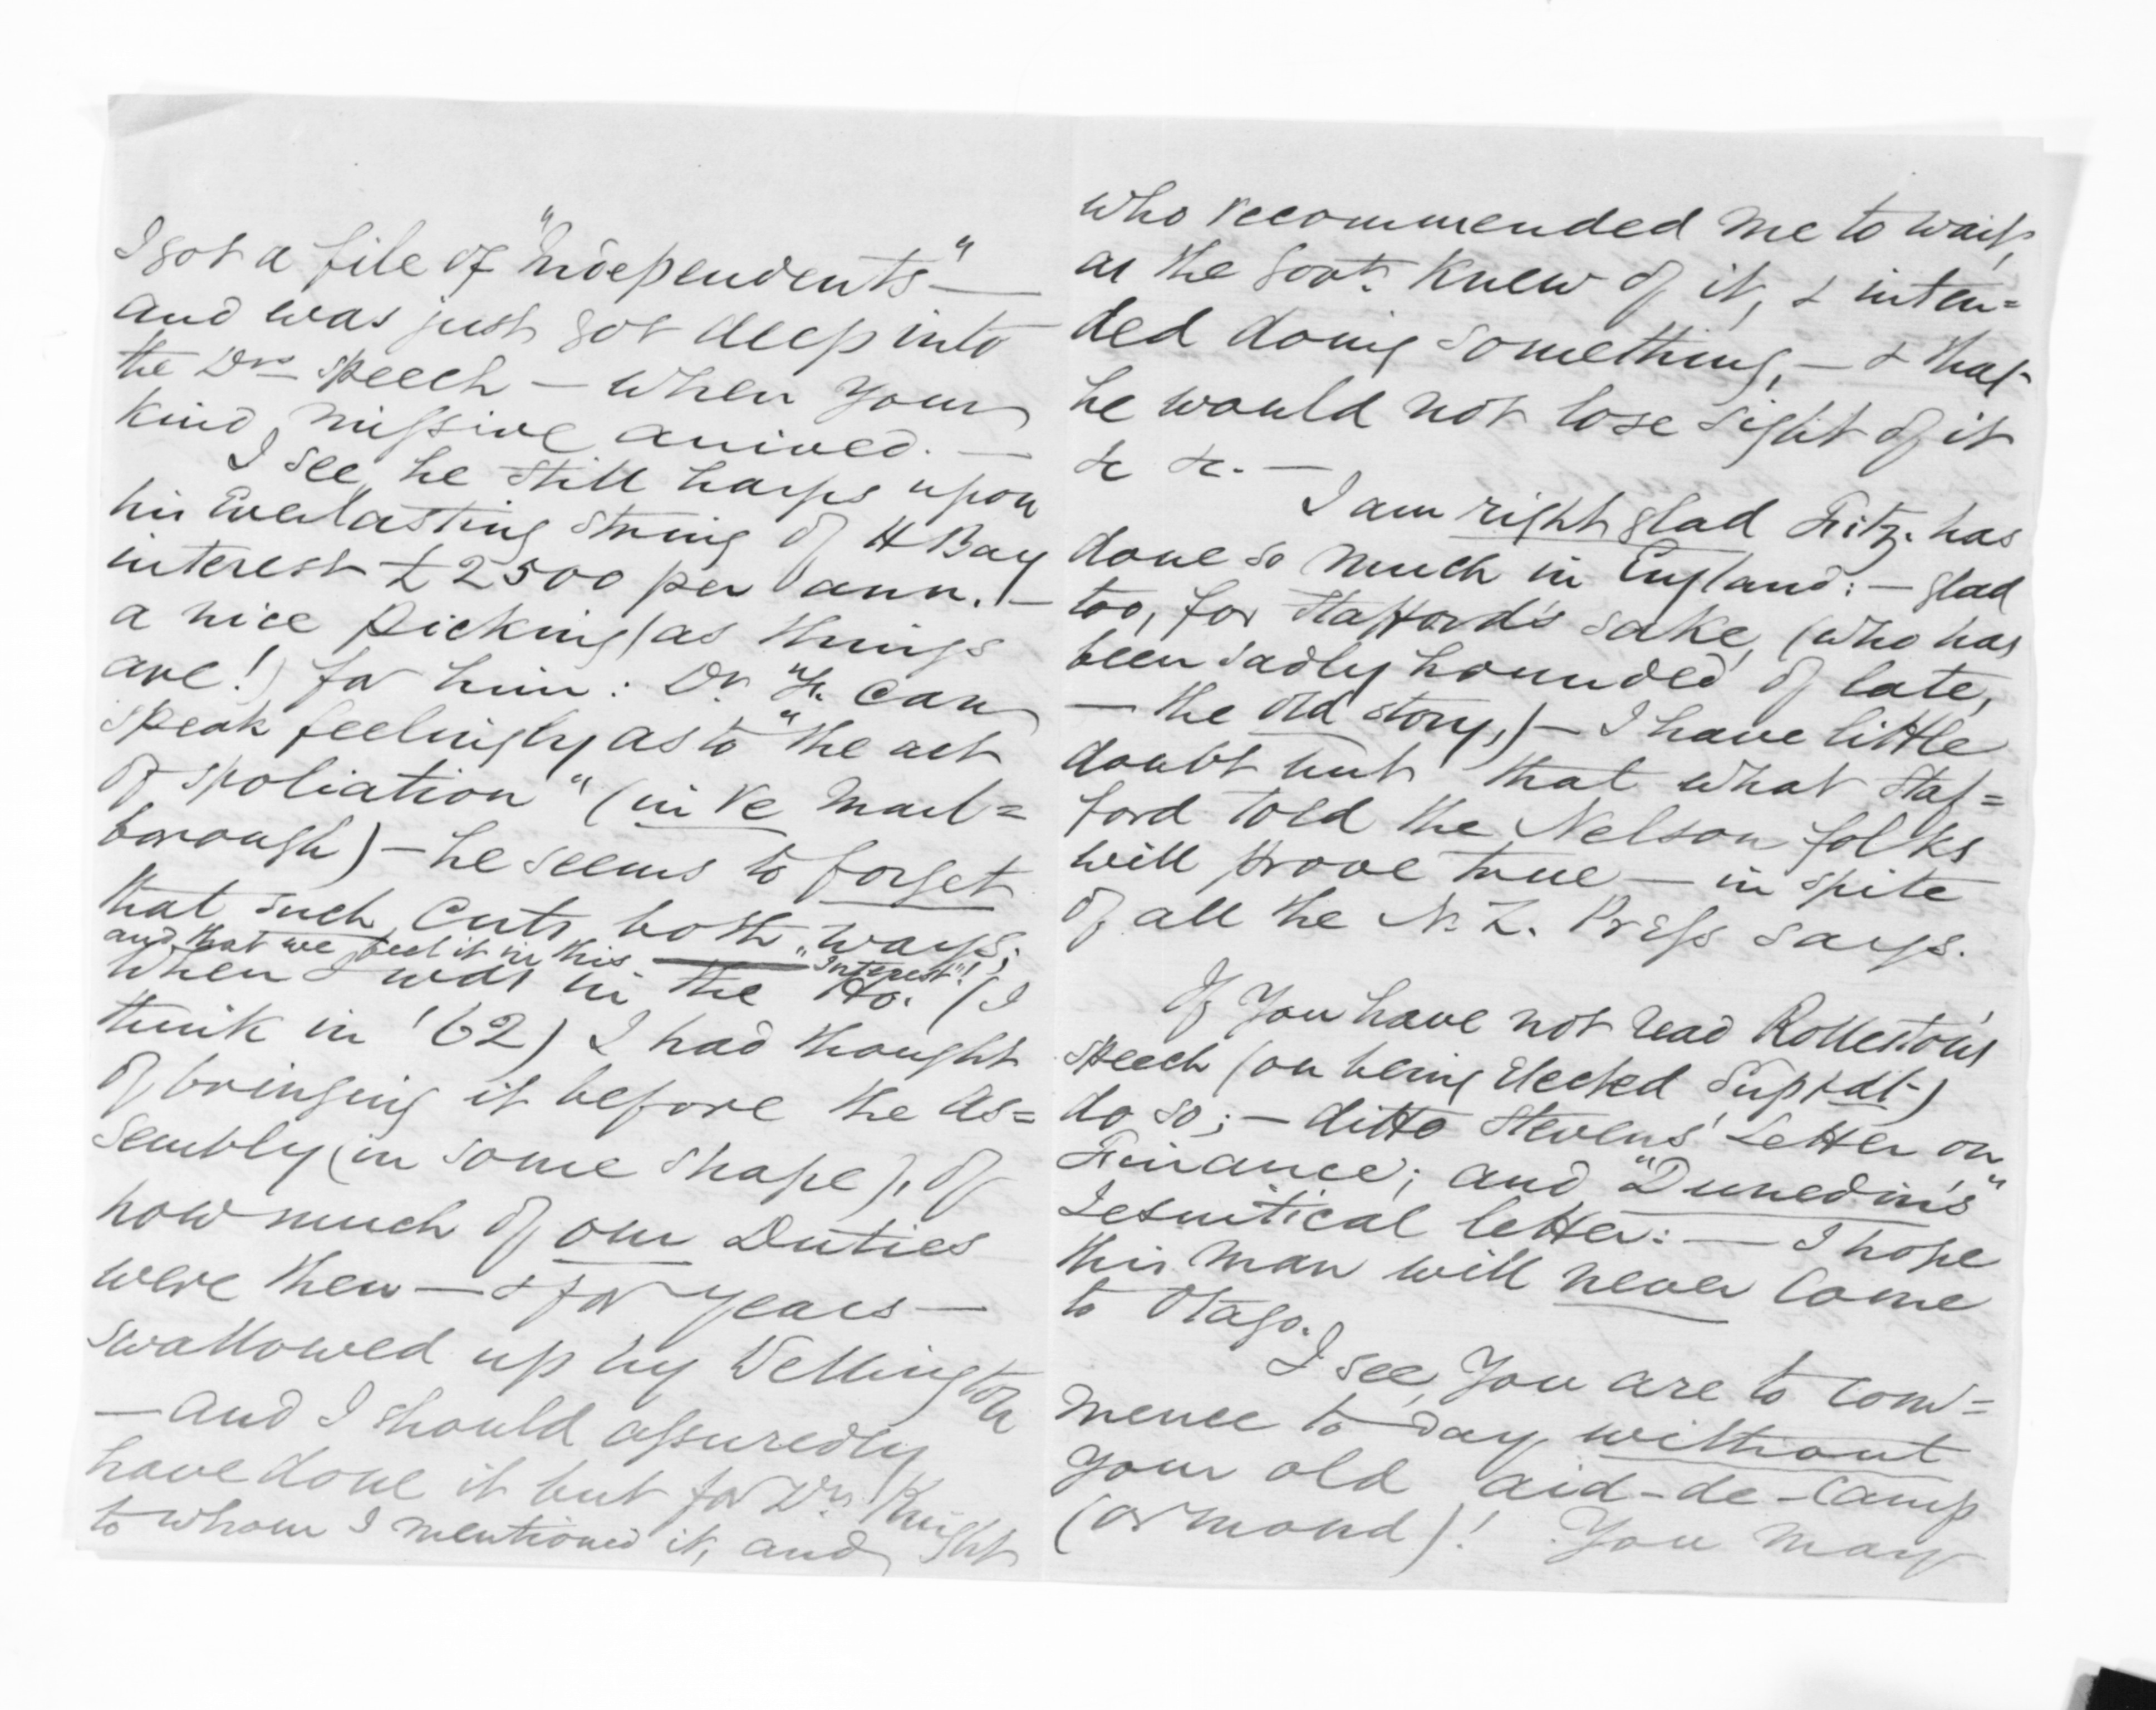 I got a file of "Independents" —
and was just got deep into
the Drs speech — when your
kind missive arrived. —
I see, he still harps upon
his Everlasting string of H Bay
interest £2500 per ann. —
a nice picking (as things
are!) for him: Dr. F. can
speak feelingly as to "the act
of spoliation" (in re Marl=
borough) — he seems to forget
that such cuts both ways;
and that we feel it in this "Interest"!
when I was in the Ho. (I
think in '62) I had thought
of bringing it before the As=
sembly (in some shape), of
how much of our Duties
were then — & for years —
swallowed up by Wellington
— and I should assuredly
have done it but for Dr. Knight
to whom I mentioned it, and
who recommended me to wait,
as the Govt. Knew of it, & inten=
ded doing something, — & that
he would not lose sight of it
&c &c. —
I am right glad Fitz. has
done so much in England: — glad
too, for Stafford's sake, (who has
been sadly hounded of late,
— the old story,) — I have little
doubt but that what Staf=
ford told the Nelson folks
will prove true — in spite
of all the N. Z. Press says.
If You have not read Rolleston's
speech (on being Elected Suptdt)
do so; — ditto Stevens' Letter on
Finance; and "Dunedin's"
Jesuitical letter: — I hope
this man will never come
to Otago.
I see, You are to com=
mence to-day without
your old aid-de-camp
(Ormond)! You may